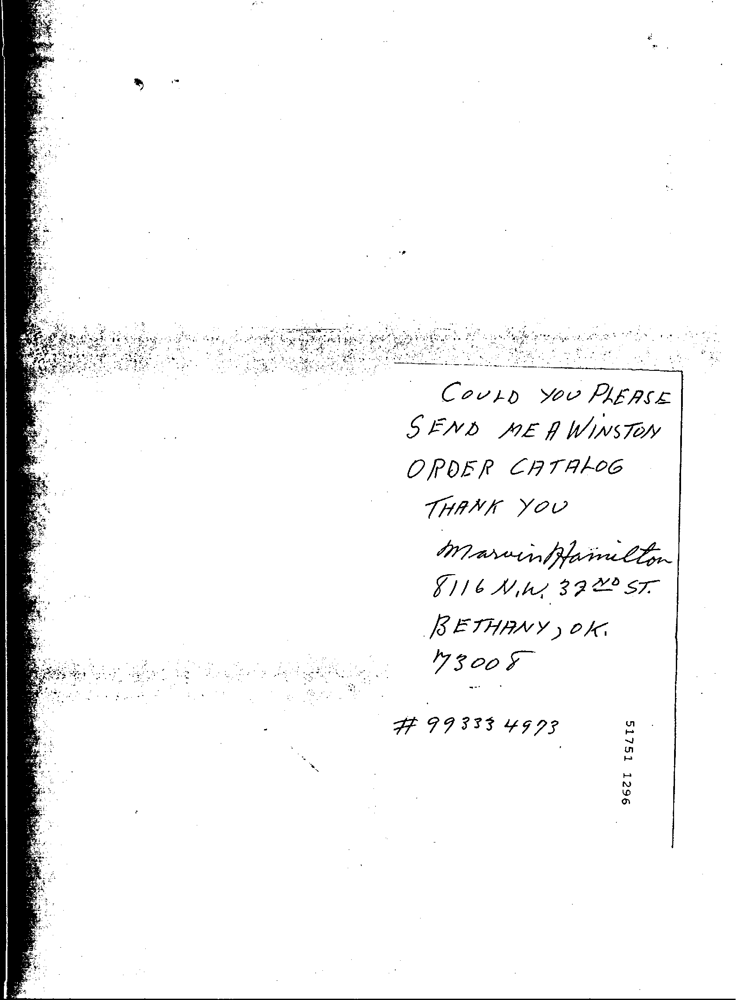 COULD YOU PLEASE
SEND ME A WINSTON
ORDER CATALOG
THANK YOU
Marvin Hamilton
8116 N.W. 32ND ST.
BETHANY, OK.
73008
# 993334973
51751 1296